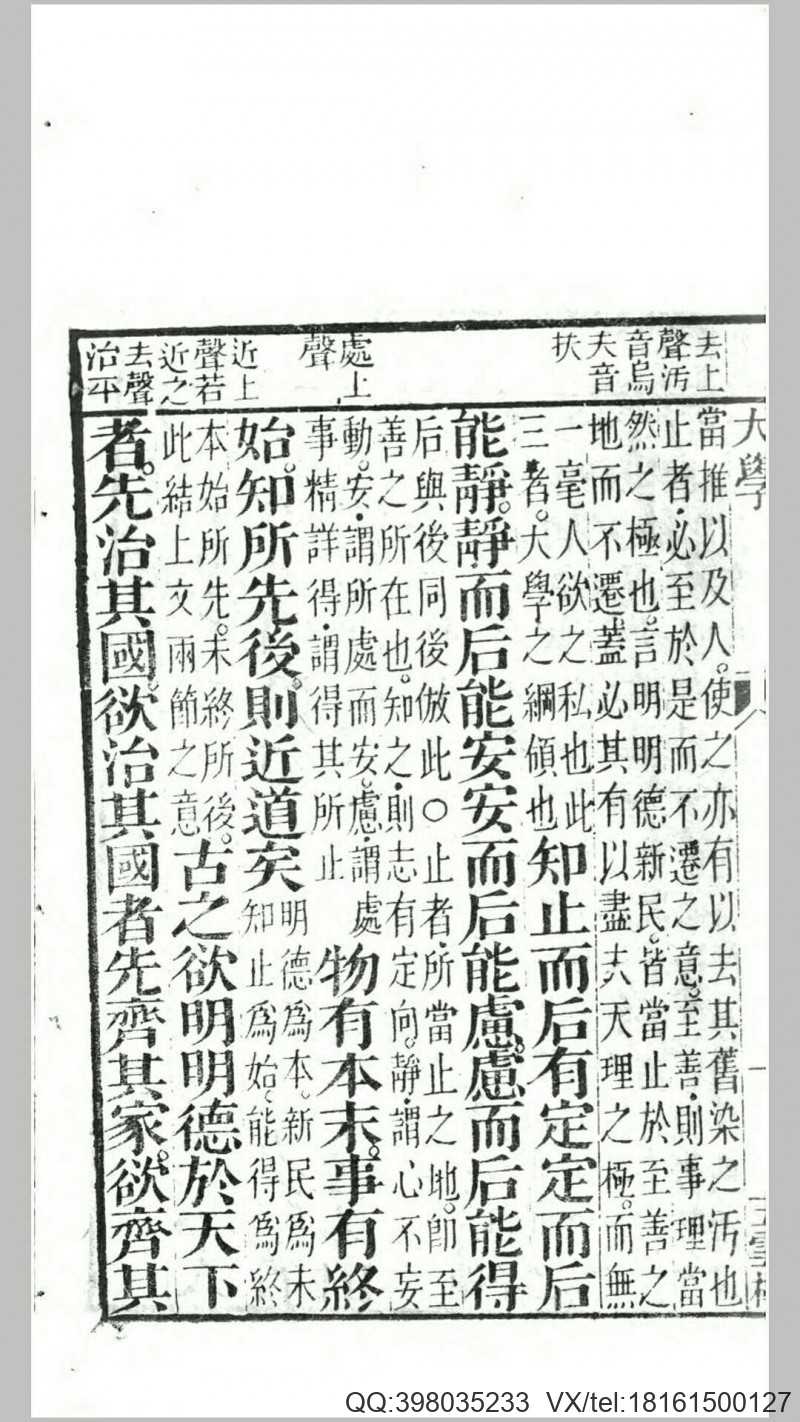 去上
聲汚
音烏
夫音
扶
處上
聲
近上
聲若
近之
去聲
治平
大學
一
當推以及人。使之亦有以去其舊染之汚也
止者。必至於是而不遷之意。至善。則事理當
然之極也。言明明德新民。皆當止於至善之
地而不遷。蓋必其有以盡夫天理之極。而無
一毫人欲之私也此
三者。大學之綱領也
知止而后有定定而后
能靜。靜而后能安安而后能慮。慮而后能得
后與後同後倣此○止者。所當止之地。卽至
善之所在也。知之。則志有定向。靜。謂心不妄
動。安。謂所處而安。慮。謂處
事精詳得。謂得其所止
物有本末。事有終
始。知所先後。則近道矣
明德爲本。新民爲末
知止爲始。能得爲終
本始所先。末終所後。
此結上文兩節之意
古之欲明明德於天下
者。先治其國。欲治其國者先齊其家。欲齊其
QQ:398035233 VX/tel:18161500127